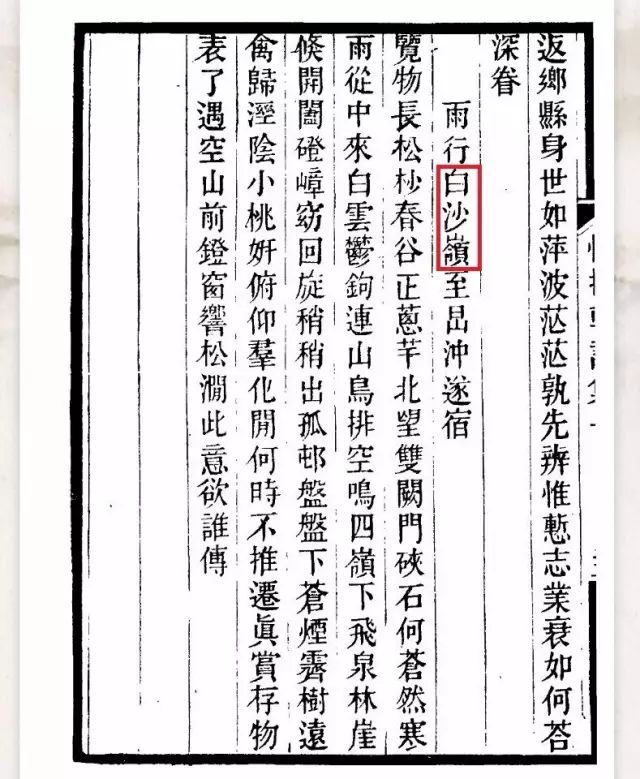 返鄉縣身世如萍波茫茫孰先辨惟慙志業衰如何荅
深眷
雨行白沙嶺至旵沖遂宿
覽物長松杪春谷正蔥芊北望雙闕門硤石何蒼然寒
雨從中來白雲鬱鉤連山鳥排空鳴四嶺下飛泉林崖
倏開闔磴嶂窈回旋稍稍出孤邨盤盤下蒼煙霽樹遠
禽歸溼陰小桃妍俯仰羣化閒何時不推遷眞賞存物
表了遇空山前鐙窗響松澗此意欲誰傳